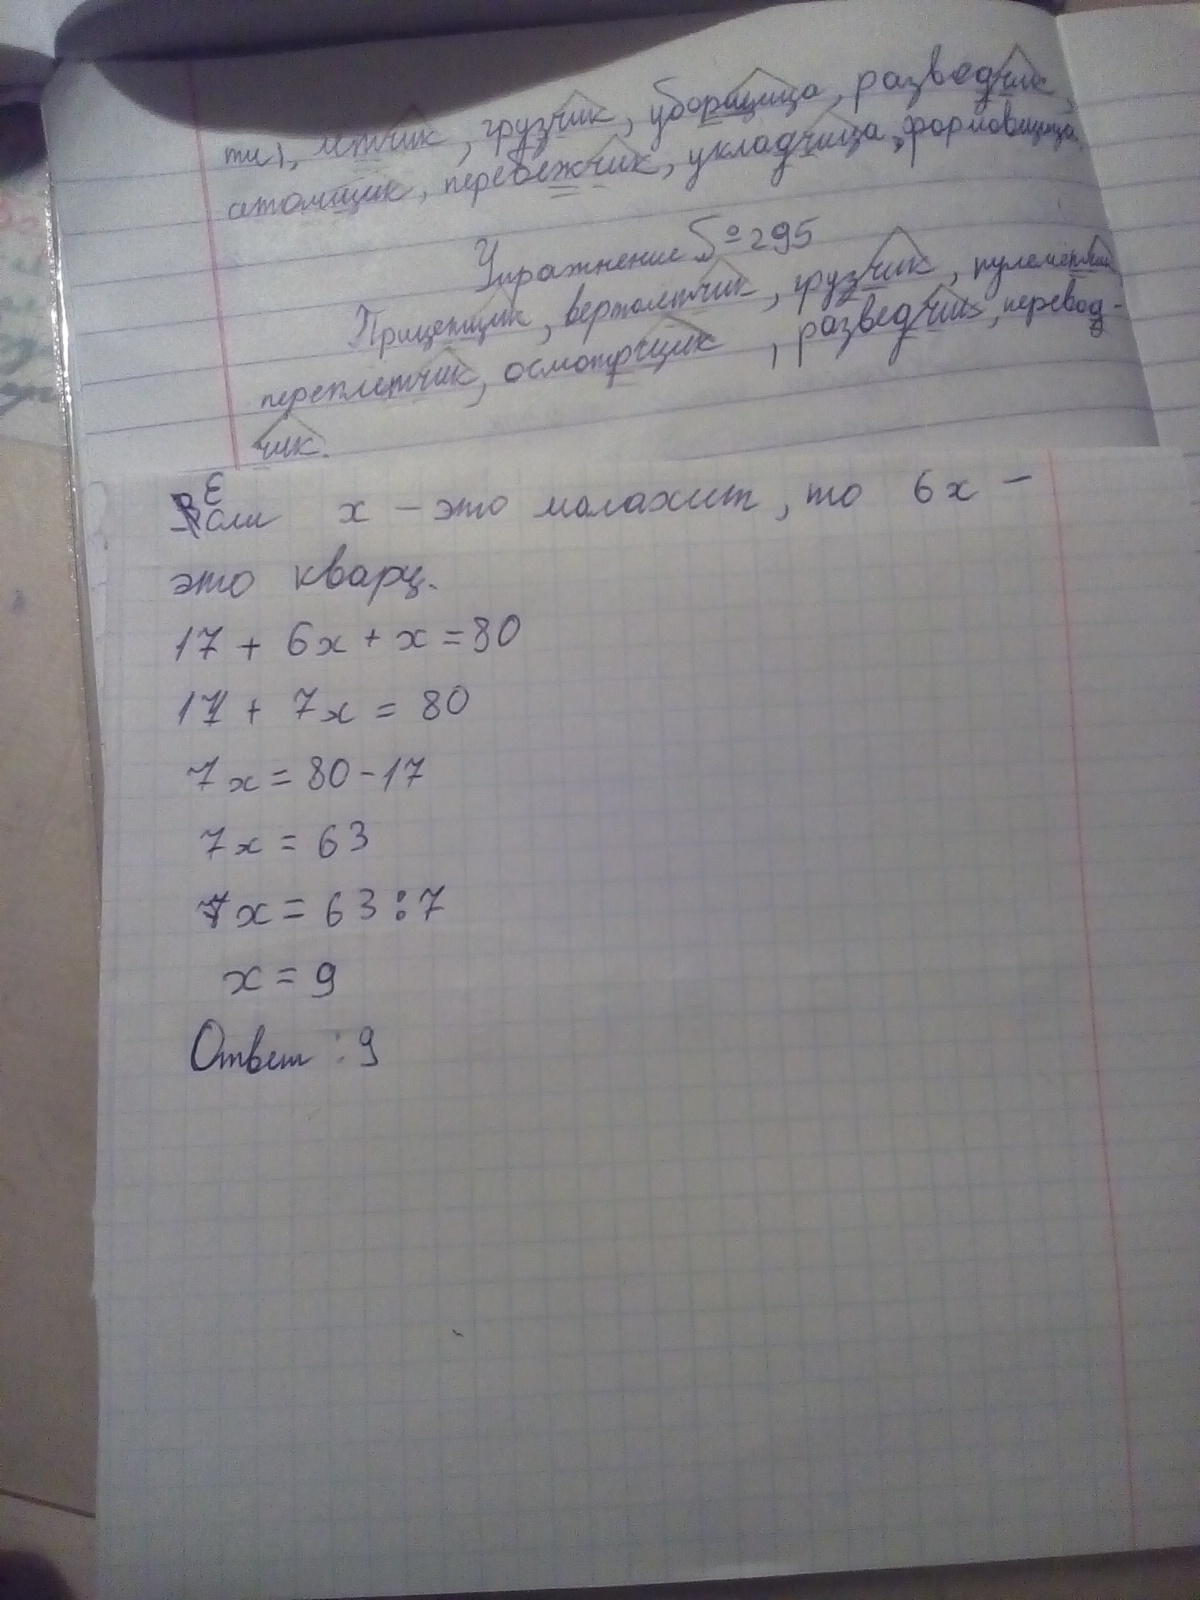 ти), лётчик, грузчик, уборщица, разведчик,
атомщик, перебежчик, укладчица, формовщица.
Упражнение №295
Прицепщик, вертолётчик, грузчик, пулемётчик
переплётчик, осмотрщик, разведчик, перевод-
чик.
Если x – это малахит, то 6x –
это кварц.
17 + 6x + x = 80
17 + 7x = 80
7x = 80 - 17
7x = 63
7x = 63 : 7
x = 9
Ответ : 9